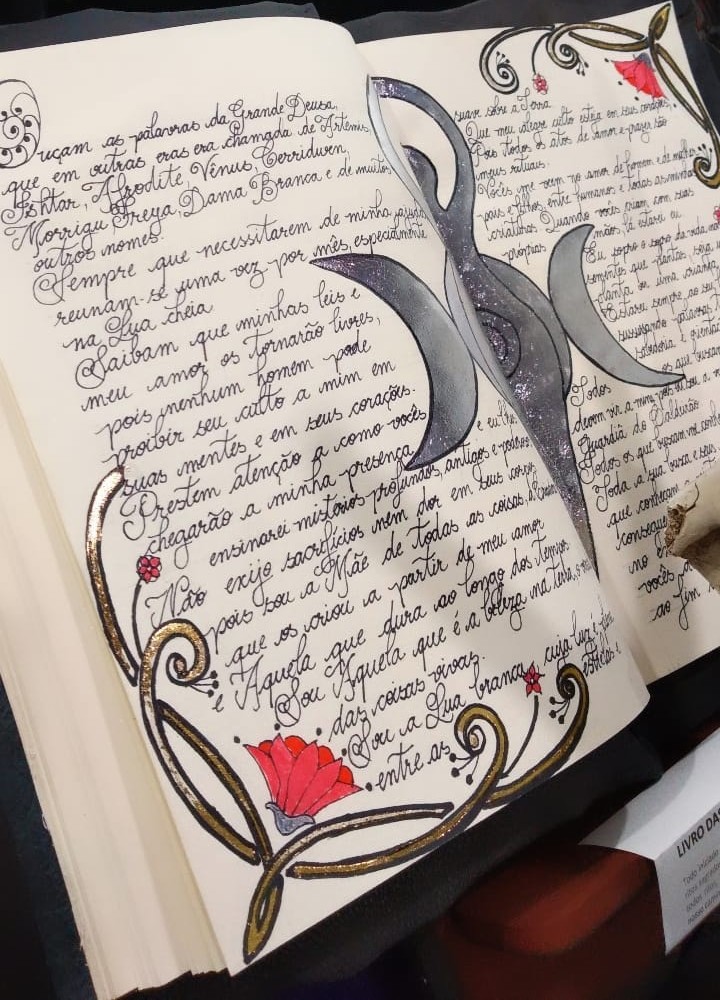 Ouçam as palavras da Grande Deusa,
que em outras eras era chamada de Artemis,
Ishtar, Afrodite, Vênus, Cerridwen,
Morrigu, Freya, Dama Branca e de muitos
outros nomes.
Sempre que necessitarem de minha ajuda
reunam-se uma vez por mês, especialmente
na Lua cheia
Saibam que minhas leis e
meu amor os tornarão livres,
pois nenhum homem pode
proibir seu culto a mim em
suas mentes e em seus corações.
Prestem atenção a como vocês
chegarão a minha presença e eu lhes
ensinarei mistérios profundos, antigos e
Não exijo sacrifícios nem dor em seus corpos
pois sou a Mãe de todas as coisas,
que os criou a partir de meu amor
e Aquela que dura ao longo dos tempos
Sou Aquela que é a beleza na terra,
das coisas vivas.
Sou a Lua branca, cuja luz é
entre as
suave sobre a Terra
Que meu alegre culto esteja em seus corações,
Pois todos os atos de amor e prazer são
meus rituais.
Vocês me veem no amor de homem e de mulher
pais e filhos, entre humanos e todas as minhas
criaturas Quando vocês criam com suas
próprias mãos, lá estarei eu
Eu sopro o sopro da vida
sementes que plantas seja
planta ou uma criança.
Estarei sempre ao seu
sussurrando palavras
sabedoria e
Todos os que buscam
devem vir a mim, pois eu sou a
Guardiã do Caldeirão
Todos os que buscam
Toda a sua busca e seus
que conheçam
consegue
no
vocês
ao fim
LIVRO DAS
Todo iniciado